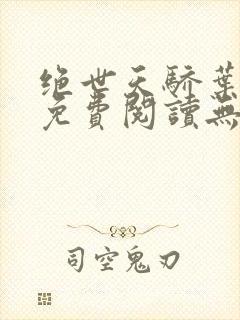 绝世天骄葉
免費閱讀無
司空鬼刃